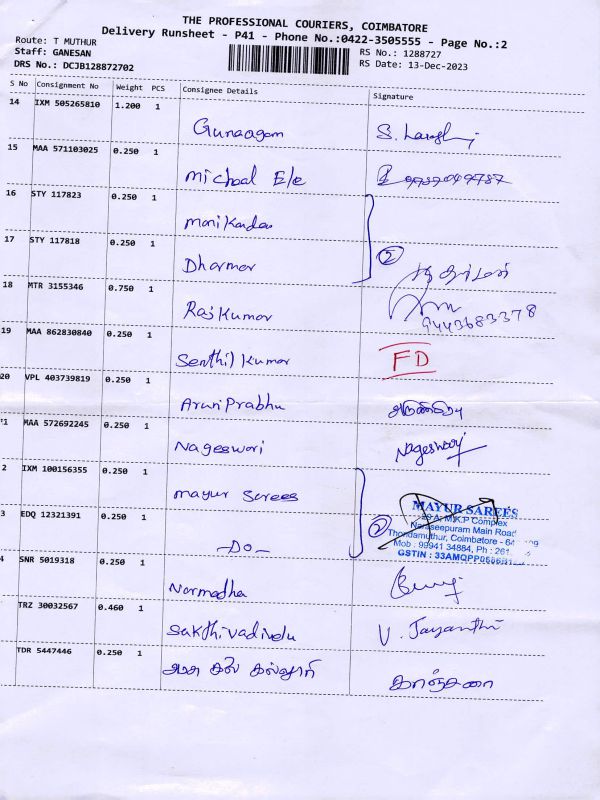 THE PROFESSIONAL COURIERS, COIMBATORE
Delivery Runsheet - P41 - Phone No.:0422-3505555 - Page No.:2
Route: T MUTHUR
Staff: GANESAN RS No.: 1288727
DRS No.: DCJB128872702 RS Date: 13-Dec-2023
S No Consignment No Weight PCS Consignee Details Signature
14 IXM 505265810 1.200 1
Gunaagam S.
15 MAA 571103025 0.250 1
Michael Ele 9789049787
16 STY 117823 0.250 1
Manikandan
17 STY 117818 0.250 1
Dharmar 2 த தர்மன்
18 MTR 3155346 0.750 1
RajKumar 9443683378
19 MAA 862830840 0.250 1
Senthil Kumar FD
20 VPL 403739819 0.250 1
ArunPrabhu
21 MAA 572692245 0.250 1
Nageswari Nageswari
2 IXM 100156355 0.250 1
Mayur Sarees MAYUR SAREES
3 EDQ 12321391 0.250 1 M.K.P Complex
Naraseepuram Main Road
-DO- 2 Thondamuthur, Coimbatore - 64
Mob : 99941 34884, Ph : 261
GSTIN : 33AMQPP
4 SNR 5019318 0.250 1
Narmadha
TRZ 30032567 0.460 1
Sakthivadivelu V. Jayanthi
TDR 5447446 0.250 1
அரசு கலை கல்லூரி